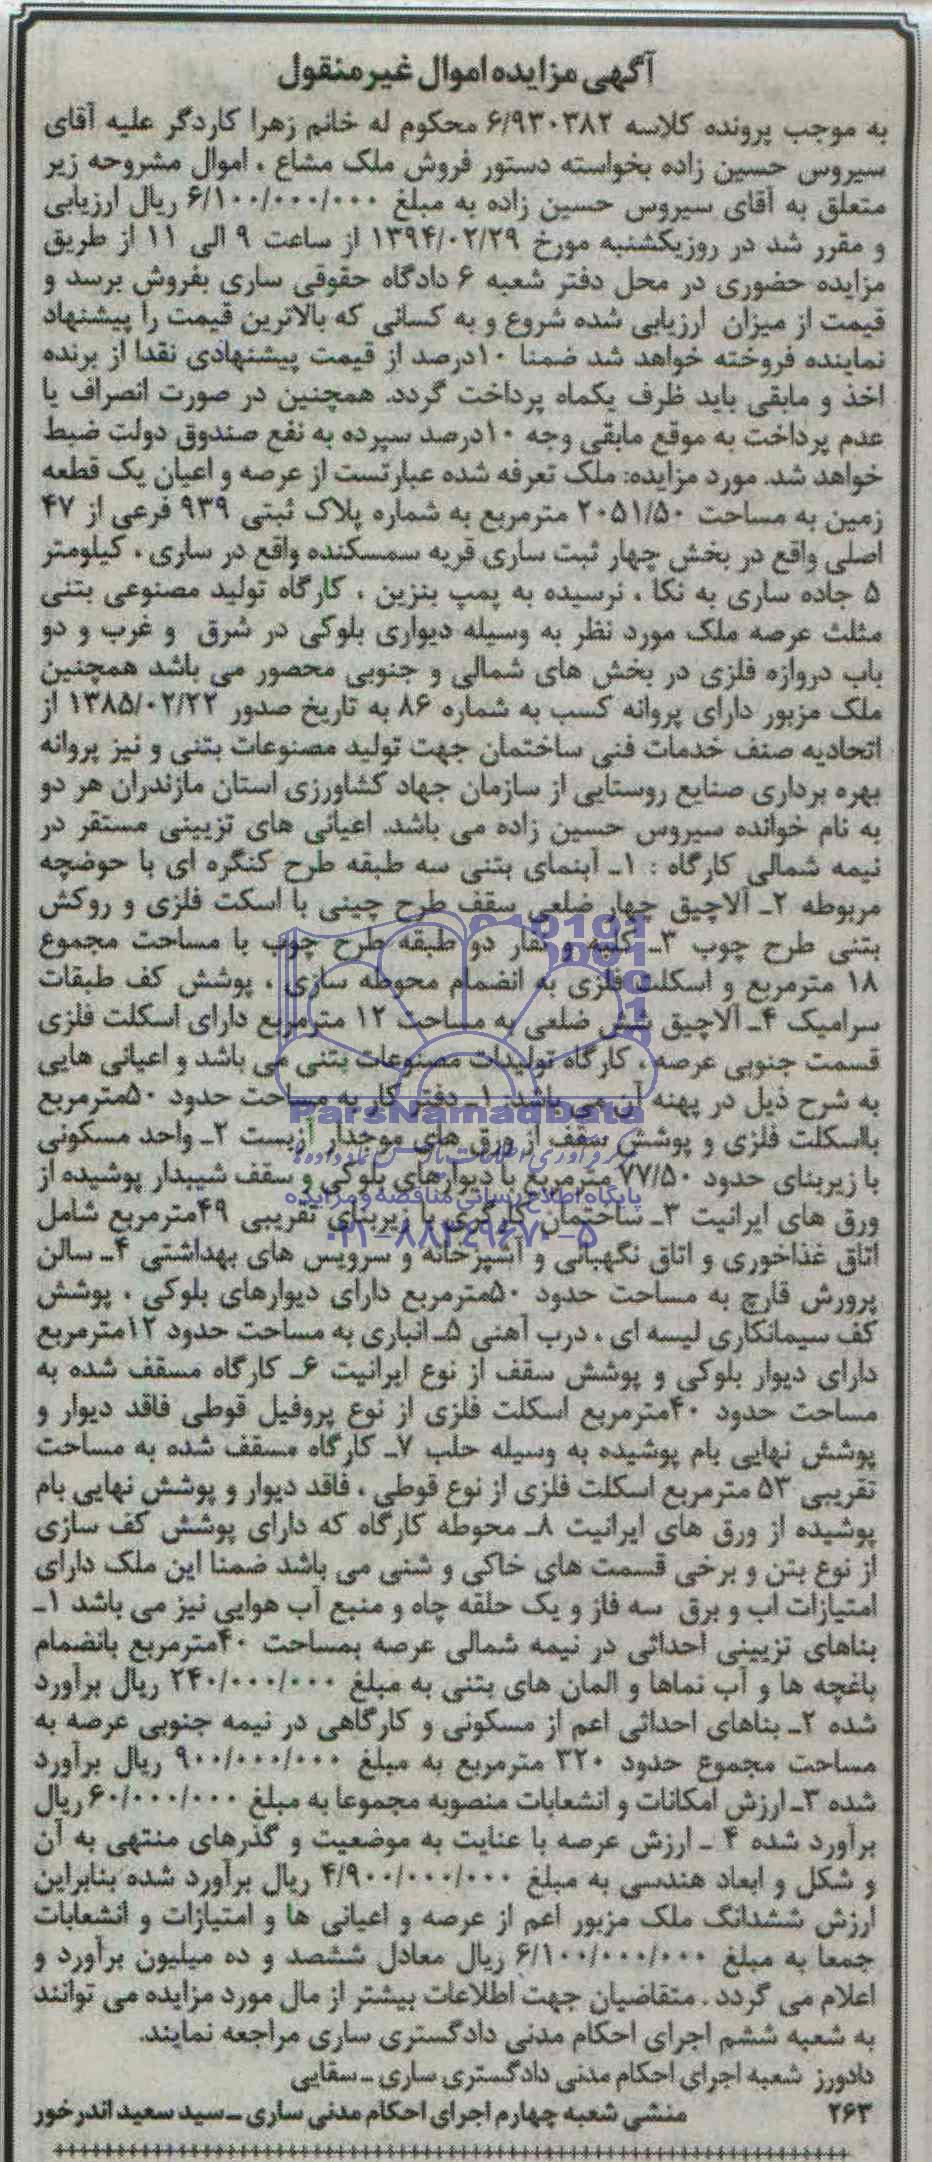 آگهی مزایده اموال غیرمنقول
به موجب پرونده کلاسه ۶/۹۳۰۳۸۲ محکوم له خانم زهرا کاردگر علیه آقای
سیروس حسین زاده بخواسته دستور فروش ملک مشاع ، اموال مشروحه زیر
متعلق به آقای سیروس حسین زاده به مبلغ ۶/۱۰۰/۰۰۰/۰۰۰ ریال ارزیابی
و مقرر شد در روزیکشنبه مورخ ۱۳۹۴/۰۲/۲۹ از ساعت ۹ الی ۱۱ از طریق
مزایده حضوری در محل دفتر شعبه ۶ دادگاه حقوقی ساری بفروش برسد و
قیمت از میزان ارزیابی شده شروع و به کسانی که بالاترین قیمت را پیشنهاد
نماینده فروخته خواهد شد ضمنا ۱۰درصد از قیمت پیشنهادی نقدا از برنده
اخذ و مابقی باید ظرف یکماه پرداخت گردد. همچنین در صورت انصراف یا
عدم پرداخت به موقع مابقی وجه ۱۰درصد سپرده به نفع صندوق دولت ضبط
خواهد شد. مورد مزایده: ملک تعرفه شده عبارتست از عرصه و اعیان یک قطعه
زمین به مساحت ۲۰۵۱/۵۰ مترمربع به شماره پلاک ثبتی ۹۳۹ فرعی از ۴۷
اصلی واقع در بخش چهار ثبت ساری قریه سمسکنده واقع در ساری ، کیلومتر
۵ جاده ساری به نکا ، نرسیده به پمپ بنزین ، کارگاه تولید مصنوعی بتنی
مثلث عرصه ملک مورد نظر به وسیله دیواری بلوکی در شرق و غرب و دو
باب دروازه فلزی در بخش های شمالی و جنوبی محصور می باشد همچنین
ملک مزبور دارای پروانه کسب به شماره ۸۶ به تاریخ صدور ۱۳۸۵/۰۲/۲۲ از
اتحادیه صنف خدمات فنی ساختمان جهت تولید مصنوعات بتنی و نیز پروانه
بهره برداری صنایع روستایی از سازمان جهاد کشاورزی استان مازندران هر دو
به نام خوانده سیروس حسین زاده می باشد. اعیانی های تزیینی مستقر در
نیمه شمالی کارگاه : ۱ـ آبنمای بتنی سه طبقه طرح کنگره ای با حوضچه
مربوطه ۲ـ آلاچیق چهار ضلعی سقف طرح چینی با اسکت فلزی و روکش
بتنی طرح چوب ۳ـ کلبه و تفار دو طبقه طرح چوب با مساحت مجموع
۱۸ مترمربع و اسکلت فلزی به انضمام محوطه سازی ، پوشش کف طبقات
سرامیک ۴ـ آلاچیق شش ضلعی به مساحت ۱۲ مترمربع دارای اسکلت فلزی
قسمت جنوبی عرصه ، کارگاه تولیدات مصنوعات بتنی می باشد و اعیانی هایی
به شرح ذیل در پهنه آن می باشد. ۱ـ دفتر کار به مساحت حدود ۵۰مترمربع
ParsNamadData
بااسکلت فلزی و پوشش سقف از ورق های موجدار آزبست ۲ـ واحد مسکونی
با زیربنای حدود ۷۷/۵۰ مترمربع با دیوارهای بلوکی و سقف شیبدار پوشیده از
پایگاه اطلاع رسانی مناقصه و مزایده
ورق های ایرانیت ۳ـ ساختمان کارگری با زیربنای تقریبی ۴۹مترمربع شامل
۰۲۱-۸۸۳۴۹۶۷۰-۵
اتاق غذاخوری و اتاق نگهبانی و آشپزخانه و سرویس های بهداشتی ۴ـ سالن
پرورش قارچ به مساحت حدود ۵۰مترمربع دارای دیوارهای بلوکی ، پوشش
کف سیمانکاری لیسه ای ، درب آهنی ۵ـ انباری به مساحت حدود ۱۲مترمربع
دارای دیوار بلوکی و پوشش سقف از نوع ایرانیت ۶ـ کارگاه مسقف شده به
مساحت حدود ۴۰مترمربع اسکلت فلزی از نوع پروفیل قوطی فاقد دیوار و
پوشش نهایی بام پوشیده به وسیله حلب ۷ـ کارگاه مسقف شده به مساحت
تقریبی ۵۳ مترمربع اسکلت فلزی از نوع قوطی ، فاقد دیوار و پوشش نهایی بام
پوشیده از ورق های ایرانیت ۸ـ محوطه کارگاه که دارای پوشش کف سازی
از نوع بتن و برخی قسمت های خاکی و شنی می باشد ضمنا این ملک دارای
امتیازات اب و برق سه فاز و یک حلقه چاه و منبع آب هوایی نیز می باشد ۱ـ
بناهای تزیینی احداثی در نیمه شمالی عرصه بمساحت ۴۰مترمربع بانضمام
باغچه ها و آب نماها و المان های بتنی به مبلغ ۲۴۰/۰۰۰/۰۰۰ ریال برآورد
شده ۲ـ بناهای احداثی اعم از مسکونی و کارگاهی در نیمه جنوبی عرصه به
مساحت مجموع حدود ۳۲۰ مترمربع به مبلغ ۹۰۰/۰۰۰/۰۰۰ ریال برآورد
شده ۳ـ ارزش امکانات و انشعابات منصوبه مجموعا به مبلغ ۶۰/۰۰۰/۰۰۰ ریال
برآورد شده ۴ ـ ارزش عرصه با عنایت به موضعیت و گذرهای منتهی به آن
و شکل و ابعاد هندسی به مبلغ ۴/۹۰۰/۰۰۰/۰۰۰ ریال برآورد شده بنابراین
ارزش ششدانگ ملک مزبور اعم از عرصه و اعیانی ها و امتیازات و انشعابات
جمعا به مبلغ ۶/۱۰۰/۰۰۰/۰۰۰ ریال معادل ششصد و ده میلیون برآورد و
اعلام می گردد . متقاضیان جهت اطلاعات بیشتر از مال مورد مزایده می توانند
به شعبه ششم اجرای احکام مدنی دادگستری ساری مراجعه نمایند.
دادورز شعبه اجرای احکام مدنی دادگستری ساری ـ سقایی
۲۶۳ منشی شعبه چهارم اجرای احکام مدنی ساری ـ سید سعید اندرخور